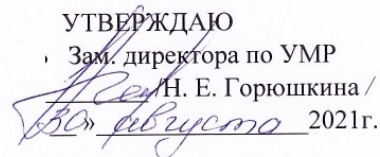 УТВЕРЖДАЮ
Зам. директора по УМР
/Н. Е. Горюшкина /
30» августа 2021г.